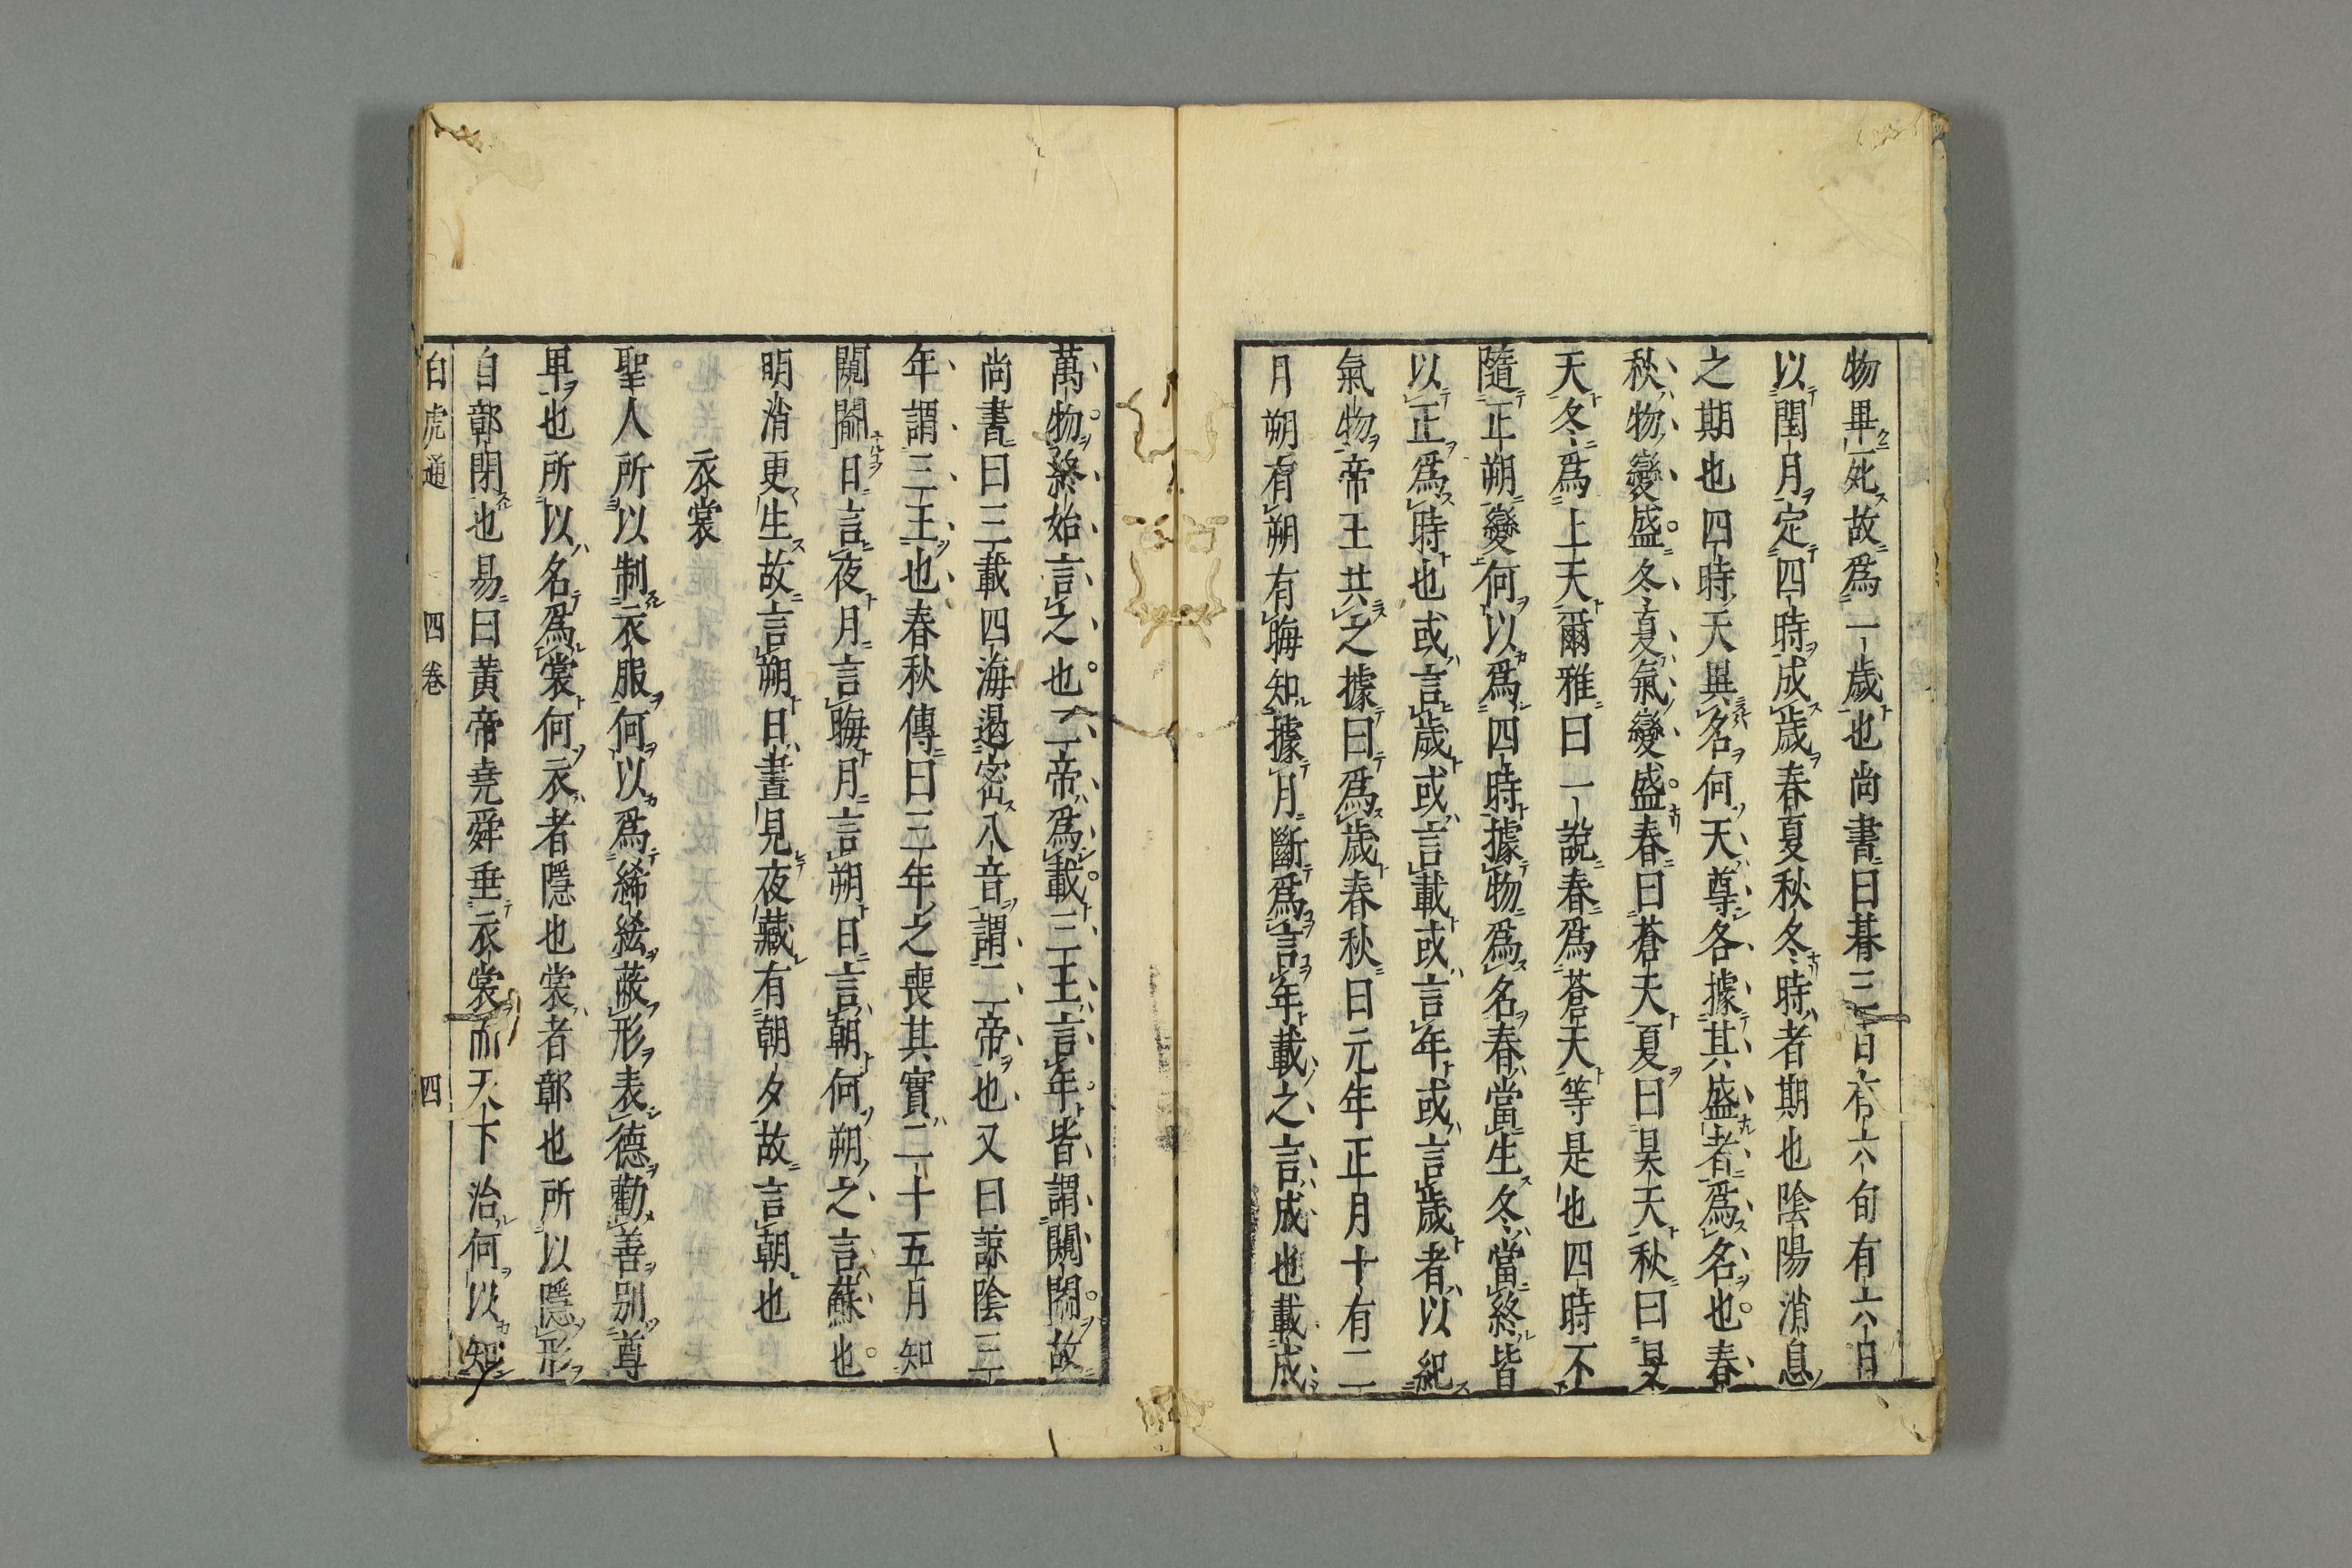 物畢死故爲一歲也尚書曰朞三百有六旬有六日
以閏月定四時成歲春夏秋冬時者期也陰陽消息
之期也四時天異名何天尊各據其盛者爲名也春
秋物變盛冬夏氣變盛春曰蒼天夏曰昊天秋曰旻
天冬爲上天爾雅曰一說春爲蒼天等是也四時不
隨正朔變何以爲四時據物爲名春當生冬當終皆
以正爲時也或言歲或言載或言年或言歲者以紀
氣物帝王共之據曰爲歲春秋曰元年正月十有二
月朔有朔有晦知據月斷爲言年載之言成也載成
萬物終始言之也二帝爲載三王言年皆謂闚闞故
尚書曰三載四海遏密八音謂二帝也又曰諒陰三
年謂三王也春秋傳曰三年之喪其實二十五月知
闚闞日言夜月言晦月言朔日言朝何朔之言蘇也
明消更生故言朔日晝見夜藏有朝夕故言朝也
衣裳
聖人所以制衣服何以爲絺綌蔽形表德勸善別尊
卑也所以名爲裳何衣者隱也裳者鄣也所以隱形
自鄣閉也易曰黃帝堯舜垂衣裳而天下治何以知
白虎通 四卷 四